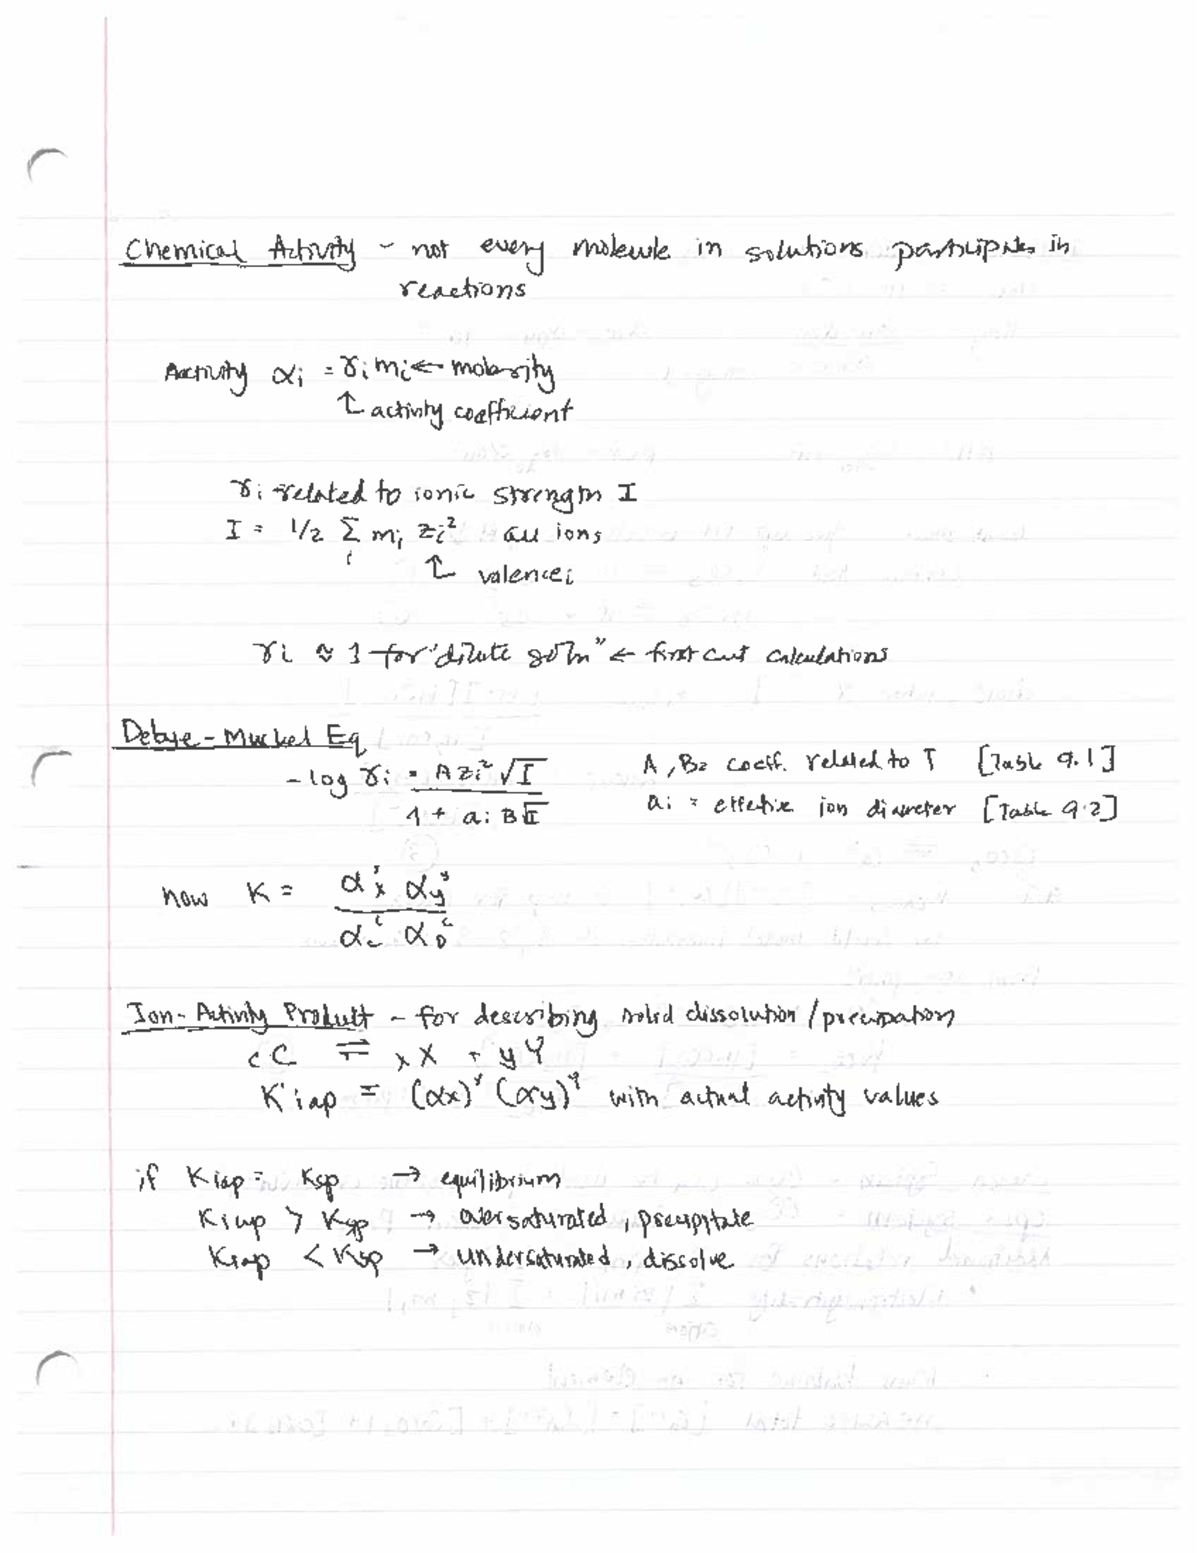 Chemical Activity - not every molecule in solutions participates in
reactions
Activity αi = γi mi ← molarity
↑ activity coefficient
γi related to ionic strength I
I = 1/2 Σi mi zi² all ions
↑ valence i
γi ≈ 1 for "dilute sol'n" ← first cut calculations
Debye-Huckel Eq
-log γi = A zi² √I / (1 + ai B√I)
A, B = coeff. related to T [Table 9.1]
ai = effective ion diameter [Table 9.2]
now K = αx^x αy^y / αc^c αD
Ion-Activity Product - for describing solid dissolution/precipitation
cC ⇌ xX + yY
Kiap = (αx)^x (αy)^y with actual activity values
if Kiap = Ksp → equilibrium
Kiap > Ksp → oversaturated, precipitate
Kiap < Ksp → undersaturated, dissolve